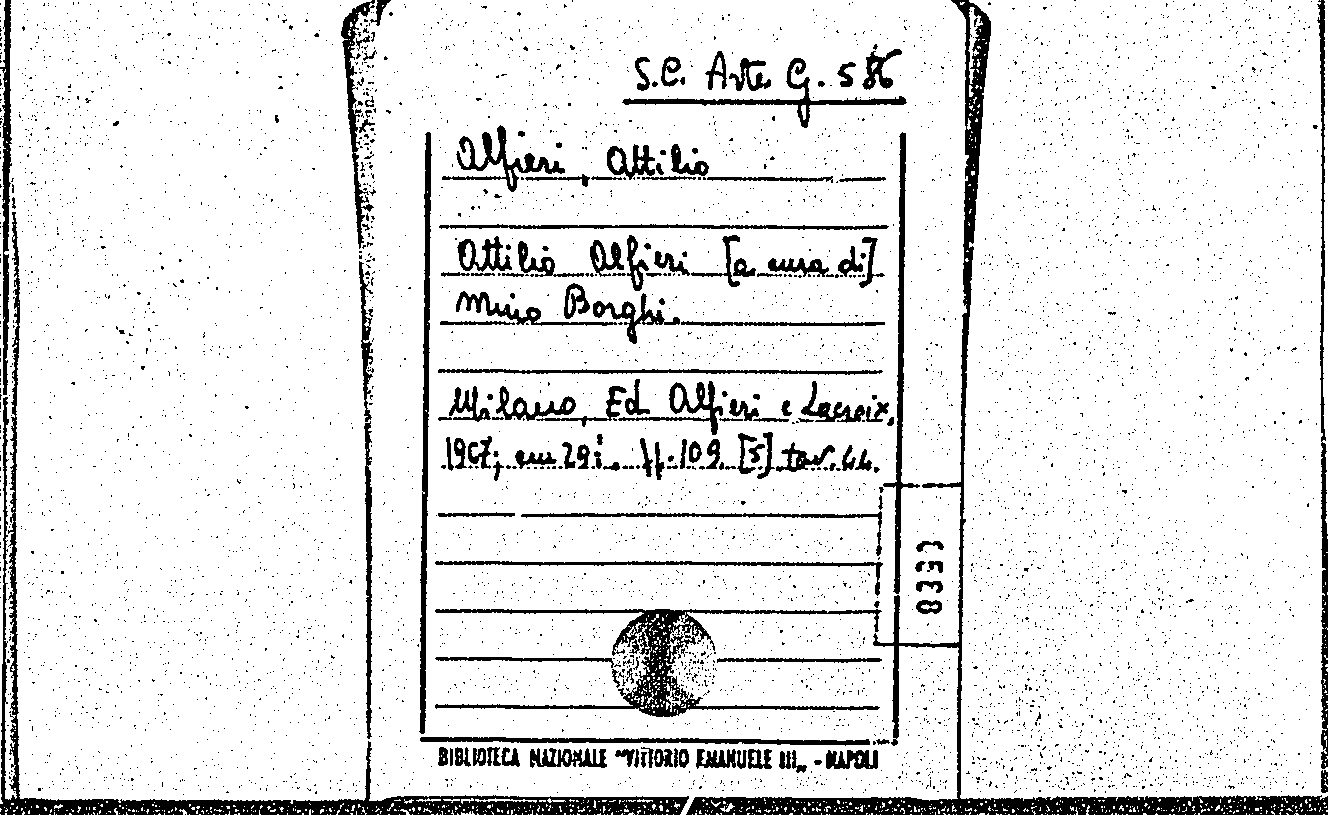 S.C. Arte G. 586
Alfieri, Attilio
Attilio Alfieri [a cura di]
Mino Borghi.
Milano, Ed. Alfieri e Lacroix,
1967; cm 29; pp. 109. [5] tav. 44.
BIBLIOTECA NAZIONALE "VITTORIO EMANUELE III„ - NAPOLI